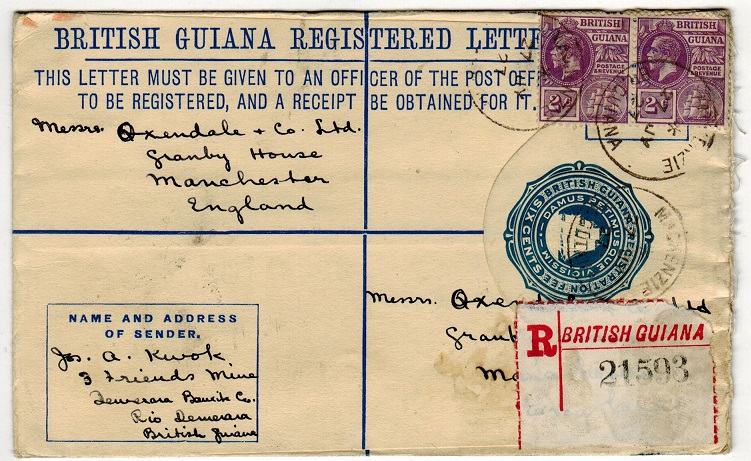 BRITISH GUIANA REGISTERED LETTE
THIS LETTER MUST BE GIVEN TO AN OFFICER OF THE POST OFF
TO BE REGISTERED, AND A RECEIPT BE OBTAINED FOR IT.
BRITISH
GUIANA
POSTAGE
& REVENUE
2
BRITISH
GUIANA
POSTAGE
& REVENUE
2
Messrs. Oxendale + Co. Ltd.
Granby House
Manchester
England
BRITISH GUIANA REGISTRATION FEE SIX CENTS
DAMUS PETIMUSQUE VICISSIM
MACKENZIE
Messrs. Oxend Ltd
Granb
Ma
R BRITISH GUIANA
21593
NAME AND ADDRESS
OF SENDER.
Jos. A. Kwok
3 Friends Mine
Demerara Bauxite Co.
Rio Demerara
British Guiana